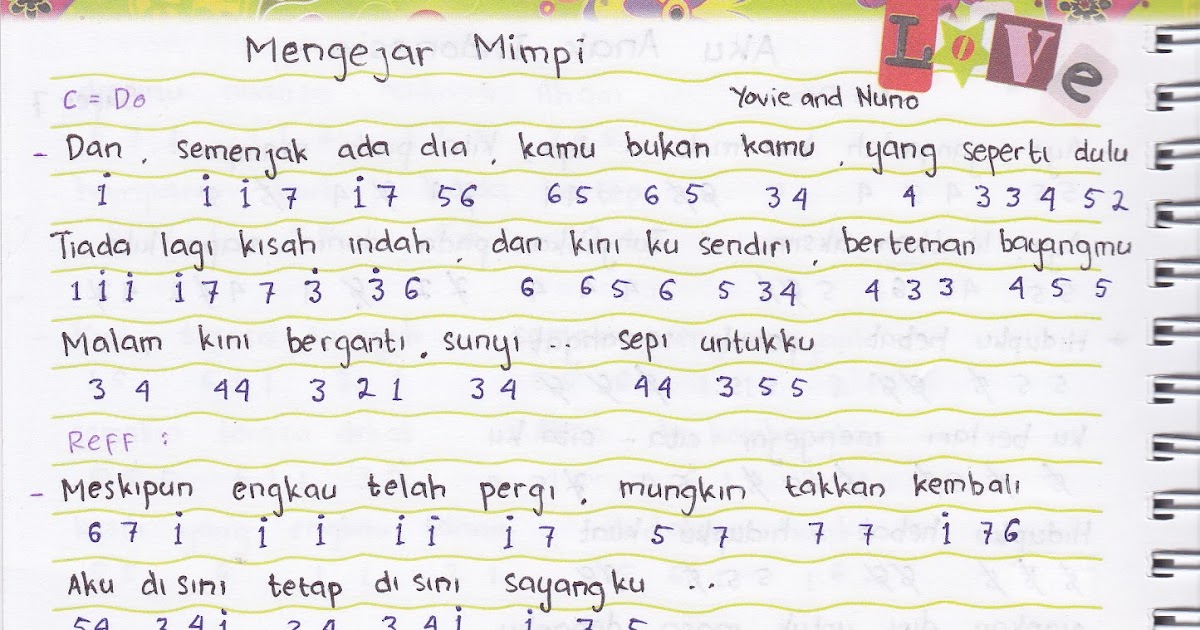 LOVE
Mengejar Mimpi
C = Do Yovie and Nuno
- Dan , semenjak ada dia , kamu bukan kamu , yang seperti dulu
1̇ 1̇ 1̇ 7 1̇ 7 56 65 6 5 34 4 3 3 4 5 2
Tiada lagi kisah indah , dan kini ku sendiri , berteman bayangmu
1 1̇ 1̇ 1̇ 7 7 3̇ 3̇ 6 6 6 5 6 5 34 4 3 3 4 5 5
Malam kini berganti . sunyi . . sepi untukku .
3 4 44 3 2 1 3 4 44 3 5 5
Reff :
- Meskipun engkau telah pergi , mungkin takkan kembali
6 7 1̇ 1̇ 1̇ 1̇ 1̇ 1̇ 7 5 7 7 7 1̇ 76
Aku disini tetap disini sayangku . .
54 3 4 1̇ 3 4 3 4 1̇ 1̇ 7 5